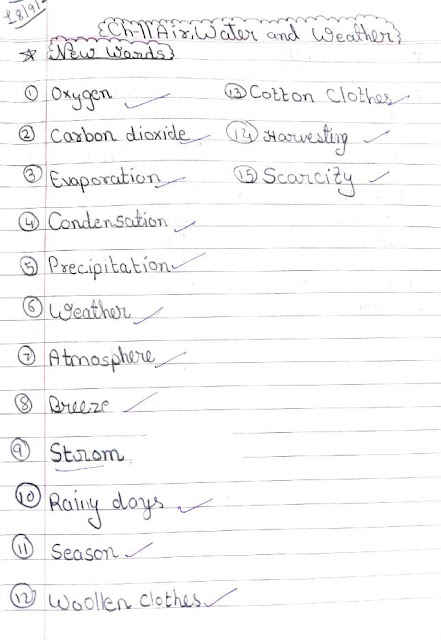 Ch-11 Air, Water and Weather
New Words
① Oxygen
② Carbon dioxide
③ Evaporation
④ Condensation
⑤ Precipitation
⑥ Weather
⑦ Atmosphere
⑧ Breeze
⑨ Strom
⑩ Rainy days
⑪ Season
⑫ Woollen Clothes
⑬ Cotton Clothes
⑭ Harvesting
⑮ Scarcity